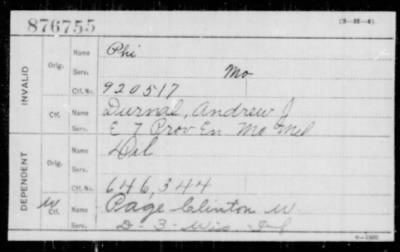 876755
(3-88-4)
INVALID
Orig.
Name Phi
Serv. Mo
Ctf. No. 920517
Ctf.
Name Durnal, Andrew J
Serv. E 7 Prov En Mo Mil
DEPENDENT
Orig.
Name
Serv.
Ctf. No. 646,344
W Ctf.
Name Page Clinton W.
Serv. D. 3 - Wis